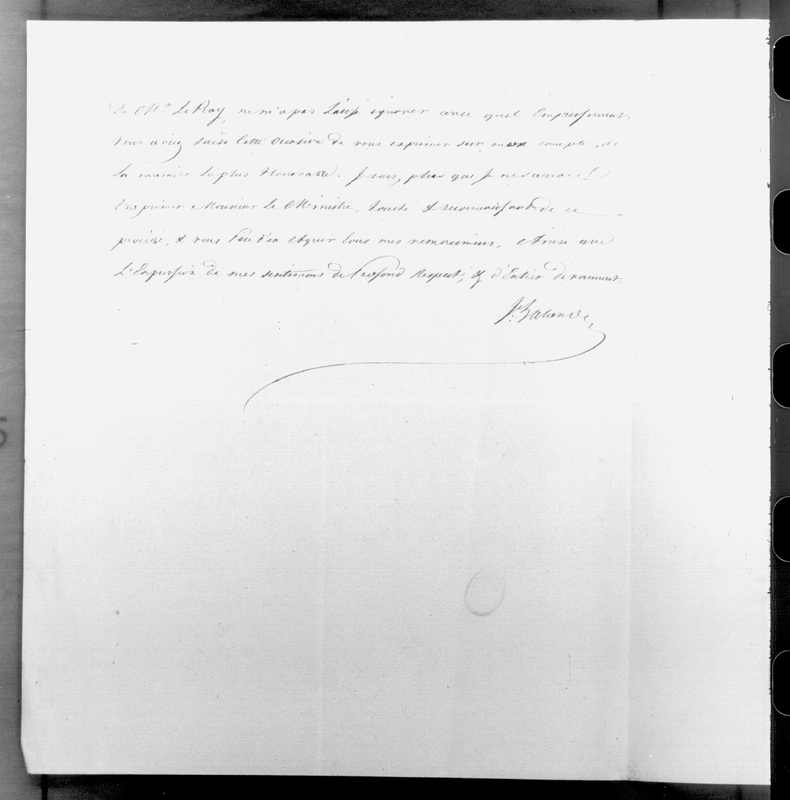 De Mr. LeRoy, ne m'a pas laissé ignorer avec quel Empressement
Vous aviez saisi Cette Occasion de vous exprimer sur mon compte, de
la maniere la plus Honorable. Je suis, plus que Je ne saurois
l'exprimer Monsieur le Ministre, touché & reconnoissant de ce
procédé, & vous Prie d'en Agréer tous mes remerciemens, Ainsi que
L'Expression de mes sentimens de Profond Respect, & d'Entier dévouement.